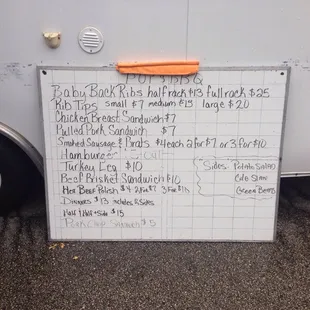 BBQ
Baby Back Ribs half rack $13 full rack $25
Rib Tips small $7 medium $15 large $20
Chicken Breast Sandwich $7
Pulled Pork Sandwich $7
Smoked Sausage & Brats $4 each 2 for $7 or 3 for $10
Hamburger
Turkey Leg $10
Beef Brisket Sandwich $10
Hot Beef Polish $4 2 for $7 3 for $10
Dinners $13 includes 2 Sides
Half 1/2 Slab + Side $15
Pork Chop Sandwich $5
Sides Potato Salad
Cole Slaw
Green Beans